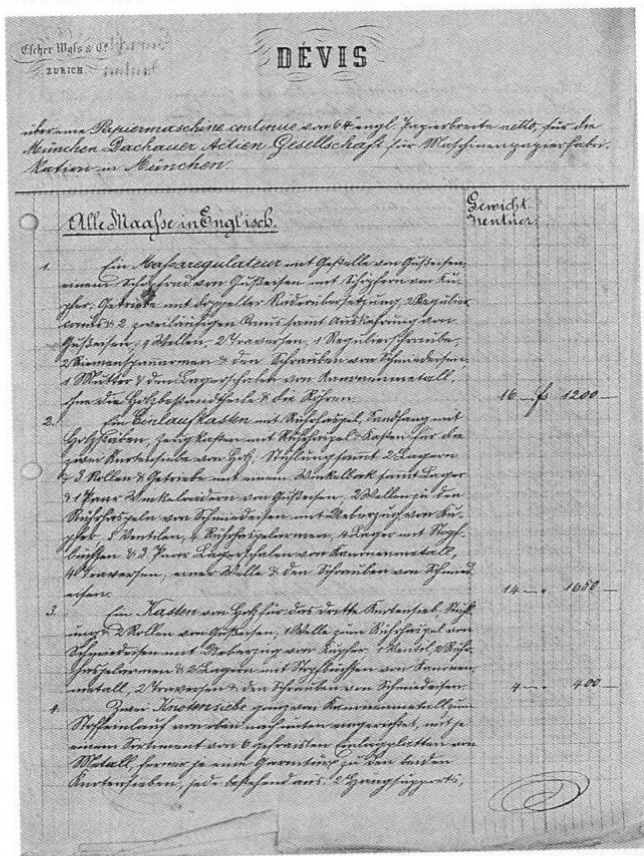 Escher Wyss & Cie
ZURICH.
DÉVIS
über eine Papiermaschine continue von 64" engl. Papierbreite netto, für die
München Dachauer Actien Gesellschaft für Maschinenpapierfabri-
kation in München.
Alle Maaße in Englisch.
Gewicht
Zentner
1. Ein Masseregulateur mit Gestelle von Gußeisen,
einem Schöpfrad von Gußeisen mit Schöpfern von Ku-
pfer, Getriebe mit doppelter Räderübersetzung, 2 Regulier-
& 2 zweiläufigen samt von
Gußeisen, 4 Wellen, 2 Traversen, 1 Regulierschraube,
2 Riemenspannarmen & den Schrauben von Schmiedeisen,
1 Mutter & den Lagerschalen von Kanonenmetall,
ohne die Holzbestandtheile & die Röhren. 16 — f 1200 —
2. Ein Einlaufkasten mit Rührhaspel, Sandfang mit
Holzstäben, Zeugkasten mit Rührhaspel & Kasten für die
zwei Knotensiebe von Holz, Stuhlung sammt 2 Lagern
& 3 Rollen & Getriebe mit einem Winkelbock sammt Lager
& 1 Paar Winkelrädern von Gußeisen, 2 Wellen zu den
Rührhaspeln von Schmiedeisen mit Ueberzug von Ku-
pfer, 5 Ventilen, Rührhaspelarmen, 4 Lager mit Stopf-
büchsen & 3 Paar Lagerschalen von Kanonenmetall,
4 Traversen, einer Welle & den Schrauben von Schmied-
eisen. 14 — " 1650 —
3. Ein Kasten von Holz für das dritte Knotensieb, Stuhl-
ung & 2 Rollen von Gußeisen, 1 Welle zum Rührhaspel von
Schmiedeisen mit Ueberzug von Kupfer, 1 Ventil, 2 Rühr-
haspelarmen & 2 Lagern mit Stopfbüchsen von Kanonen-
metall, 2 Traversen & den Schrauben von Schmiedeisen 4 — " 400 —
4. Zwei Knotensiebe ganz von Kanonenmetall zum
Stoffeinlauf von oben nach unten eingerichtet, mit je
einem Sortiment von 6 gefraisten Einlagplatten von
Metall, ferner je eine Garnitur zu den beiden
Knotensieben, jede bestehend aus: 2 Hängsupports,